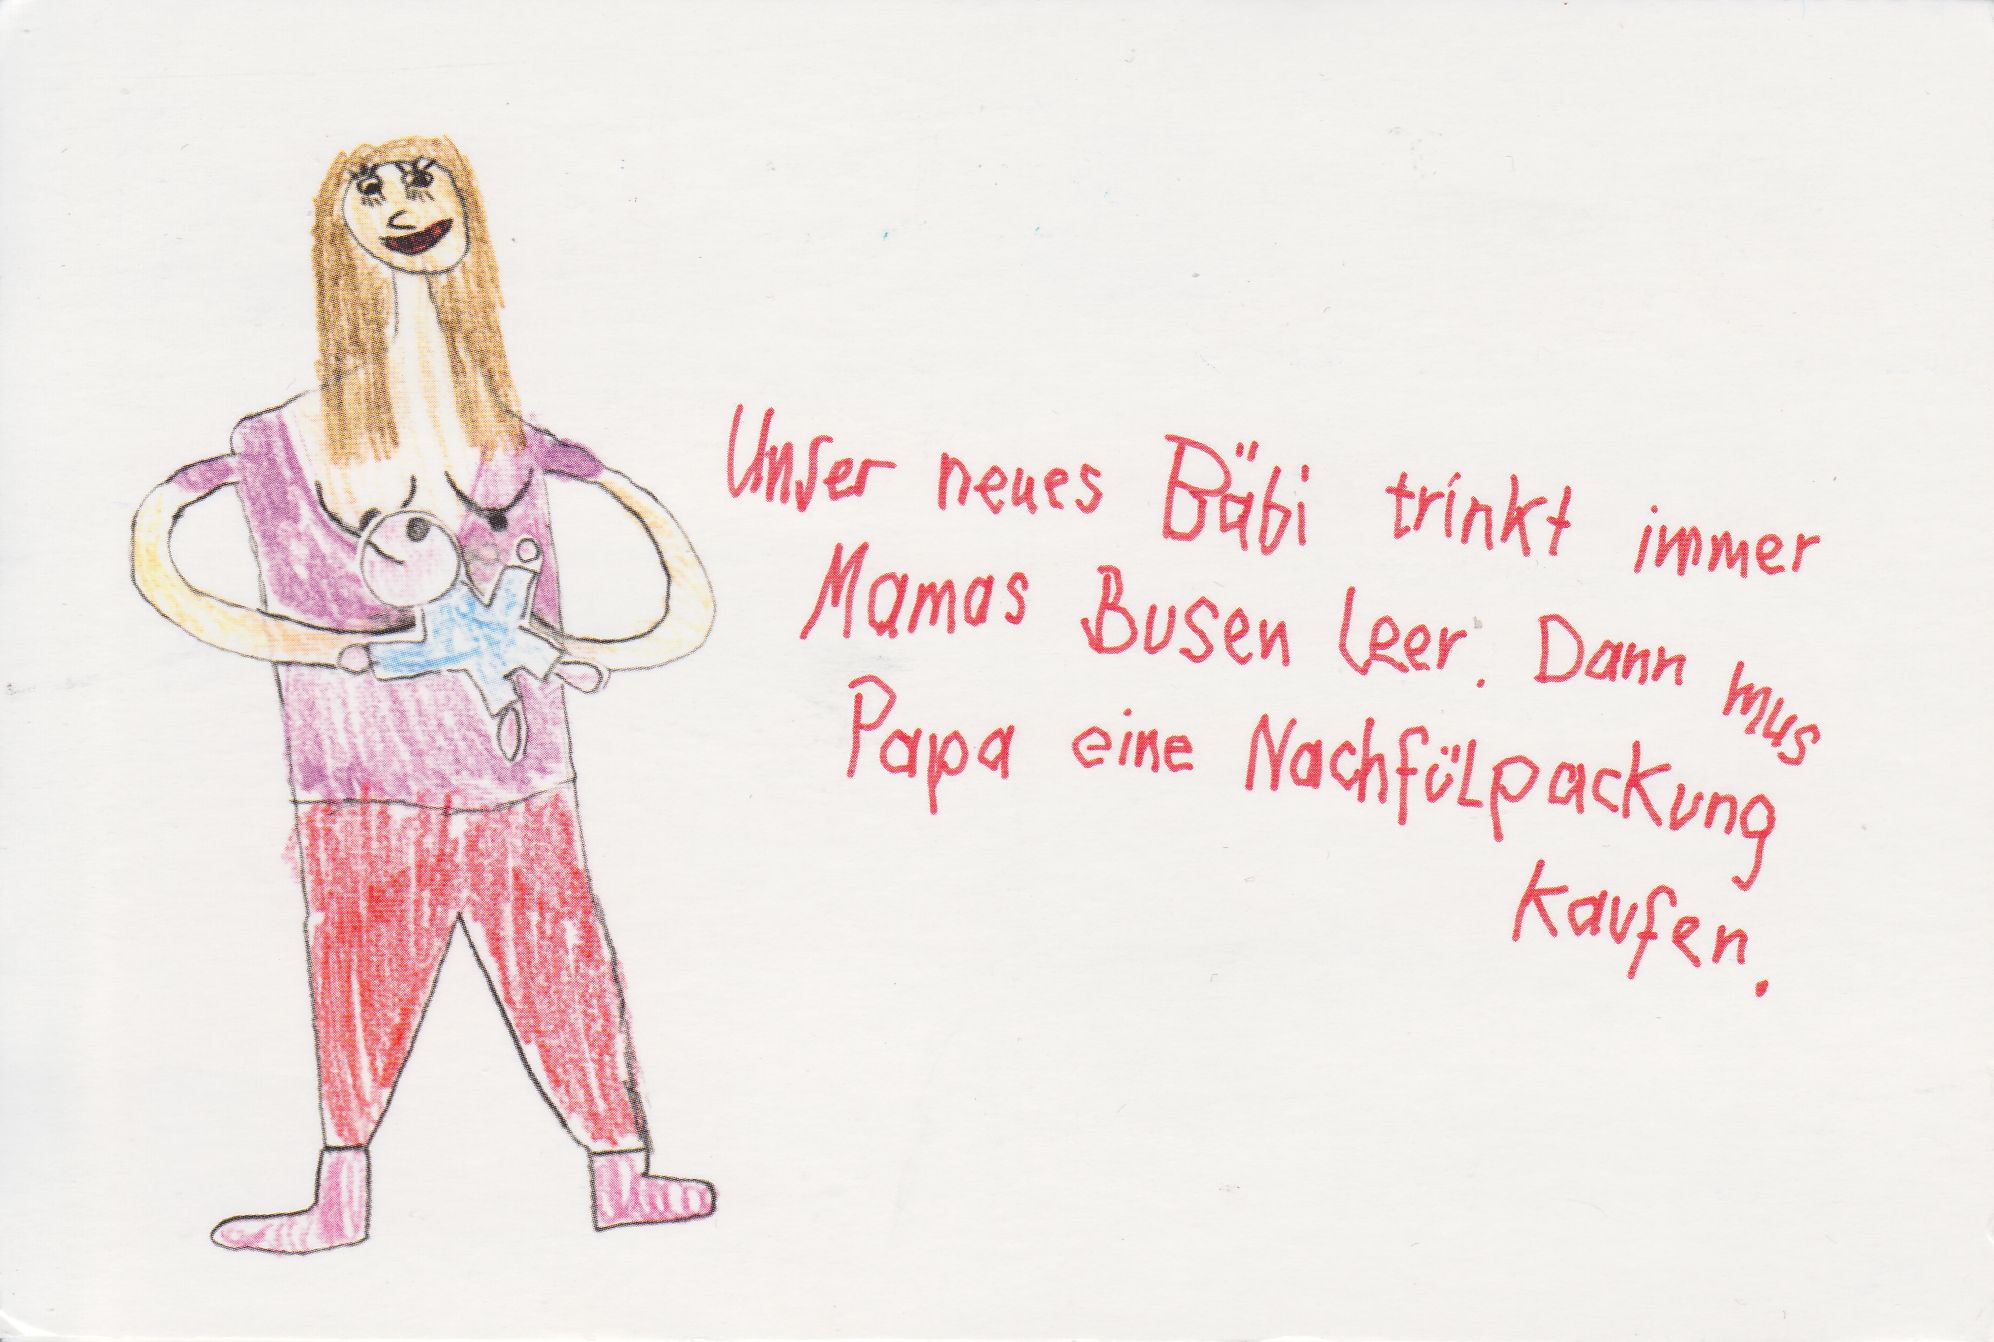 Unser neues Bäbi trinkt immer
Mamas Busen leer. Dann mus
Papa eine Nachfülpackung
kaufen.